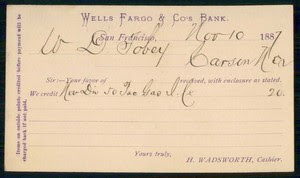 WELLS FARGO & CO'S BANK.
San Francisco, Nov 10 1887
W D Tobey
Carson Nev
Sir:—Your favor of received, with enclosure as stated.
We credit Nov Div 50 Pac Gas I. Co 20.
Yours truly,
H. WADSWORTH, Cashier.
Items on outside points credited before payment will be
charged back if not paid.